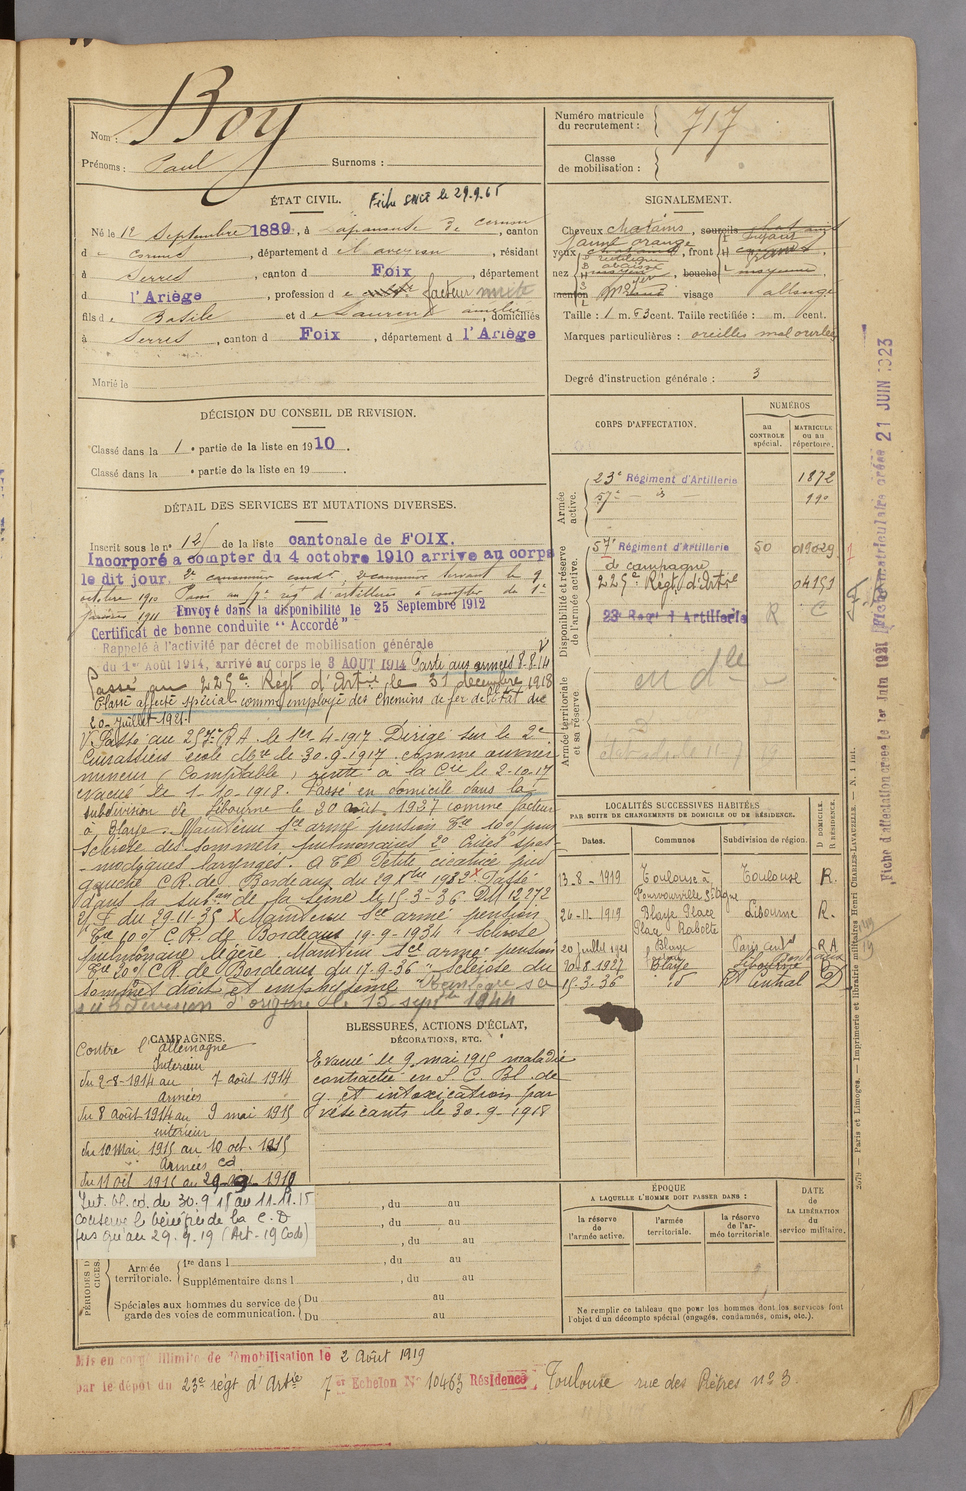 Nom : Boy
Prénoms : Paul Surnoms :
Numéro matricule du recrutement : 717
Classe de mobilisation :
ÉTAT CIVIL. Fiche SNCF le 29.9.65
Né le 12 Septembre 1889, à Lapanouse de Cernon, canton
de Cornus, département de l'Aveyron, résidant
à Serres, canton de Foix, département
d l'Ariège, profession de facteur mixte
fils de Basile et de Laurens Amélie, domiciliés
à Serres, canton d Foix, département d l'Ariège
Marié le
SIGNALEMENT.
Cheveux chatains, sourcils chatains
yeux jaune orange, front
nez moyen, bouche moyenne,
menton rond visage allongé
Taille : 1 m. 53 cent. Taille rectifiée : m. cent.
Marques particulières : oreilles mal ourlées
Degré d'instruction générale : 3
DÉCISION DU CONSEIL DE REVISION.
Classé dans la 1e partie de la liste en 1910.
Classé dans la e partie de la liste en 19
DÉTAIL DES SERVICES ET MUTATIONS DIVERSES.
Inscrit sous le n° 12 de la liste cantonale de FOIX.
Incorporé à compter du 4 octobre 1910 arrive au corps
le dit jour, 2e canonnier condr, 2e canonnier servant le 9
octobre 1910 Passé au 57e régt d'artillerie à compter du 1er
janvier 1911 Envoyé dans la disponibilité le 25 Septembre 1912
Certificat de bonne conduite "Accordé"
Rappelé à l'activité par décret de mobilisation générale
du 1er Août 1914, arrivé au corps le 3 AOUT 1914 Parti aux armées 8.8.14
Passé au 225e Régt d'Artie le 31 décembre 1918
Classé affecté spécial comme employé des chemins de fer de l'Etat du
20 juillet 1921
V. Passé au 257e RA le 1er 4-1917. Dirigé sur le 2e
Cuirassiers école de 30.9.1917 comme ouvrier
mineur (Comptable) rentré à la Cie le 2-10-17
évacué le 1-10-1918. Passé en domicile dans la
subdivision de Libourne le 30 août 1927 comme facteur
à Blaye. Maintenu sce armé pension 10% pour
Sclérose des sommets pulmonaires 2° Crises spas-
-modiques laryngées. Petite cicatrice joue
gauche C.R. de Bordeaux du 19 8bre 1932 X Passé
dans la subon de la Seine le 15-3-36. DM 12272
du 29-11-35 X Maintenu sce armé pension
10% C.R. de Bordeaux 19-9-1934 "Sclérose
pulmonaire légère. Maintenu sce armé pension
20% C.R. de Bordeaux du 17-9-36 "Sclérose du
sommet droit et emphysème. Réintègre sa
subdivision d'origine le 15 septbre 1944
CORPS D'AFFECTATION.
NUMÉROS
au CONTROLE spécial.
MATRICULE ou au répertoire.
Armée active.
23e Régiment d'Artillerie 1872
57e - d° 190
Disponibilité et réserve de l'armée active.
57e Régiment d'Artillerie 50 019029
de campagne
225e Régt d'Artie 04151
23e Regt d'Artillerie R C
Armée territoriale et sa réserve
en dle
LOCALITÉS SUCCESSIVES HABITÉES
PAR SUITE DE CHANGEMENTS DE DOMICILE OU DE RÉSIDENCE.
Dates. Communes Subdivision de région. D DOMICILE. R RÉSIDENCE.
13-8-1919 Toulouse à Toulouse R.
26-11-1919 Blaye Place Libourne R.
20 juillet 1921 Blaye Paris R A
30-8-1927 Blaye Libourne D
15-3-36 Paris Central D
CAMPAGNES.
Contre l'Allemagne
Intérieur
du 2-8-1914 au 7 août 1914
Armées
du 8 août 1914 au 9 mai 1915
intérieur
du 10 Mai 1915 au 10 oct. 1915
Armées cd
du 11 oct 1915 au 29-9-1918
Int. bl. cd. du 30.9.18 au 11.11.18
conserve le bénéfice de la C.D
jusqu'au 29.9.19 (Art-19 Code)
BLESSURES, ACTIONS D'ÉCLAT,
DÉCORATIONS, ETC.
Evacué le 9 mai 1915 maladie
contractée en S. C. Bl. de
g. et intoxication par
vésicants le 30-9-1918
, du au
, du au
, du au
PÉRIODES D'EXERCICES.
Armée territoriale. 1re dans l , du au
Supplémentaire dans l , du au
Spéciales aux hommes du service de garde des voies de communication. Du au
Du au
ÉPOQUE
A LAQUELLE L'HOMME DOIT PASSER DANS :
la réserve de l'armée active.
l'armée territoriale.
la réserve de l'armée territoriale.
DATE de LA LIBÉRATION du service militaire.
Ne remplir ce tableau que pour les hommes dont les services font
l'objet d'un décompte spécial (engagés, condamnés, omis, etc.).
Mis en congé illimité de démobilisation le 2 Août 1919
par le dépôt du 23e régt d'Artie 7e Echelon N° 10463 Résidence : Toulouse rue des Prêtres n° 3.
Fiche d'affectation créée le 1er Juin 1921 Fiche matriculaire créée 21 JUIN 1923
2679 — Paris et Limoges. — Imprimerie et librairie militaires Henri CHARLES-LAVAUZELLE. — N. 1 int.